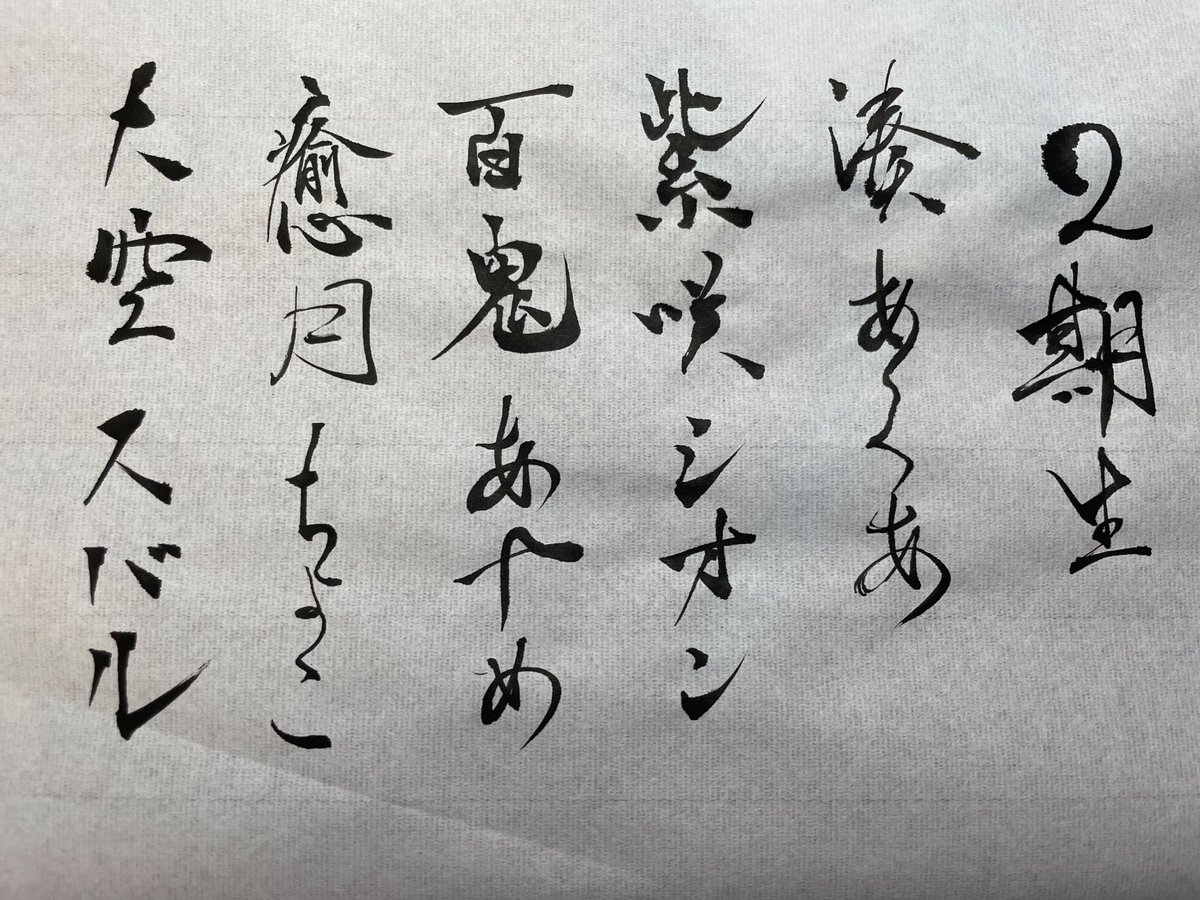 2期生
湊あくあ
紫咲シオン
百鬼あやめ
癒月ちょこ
大空スバル